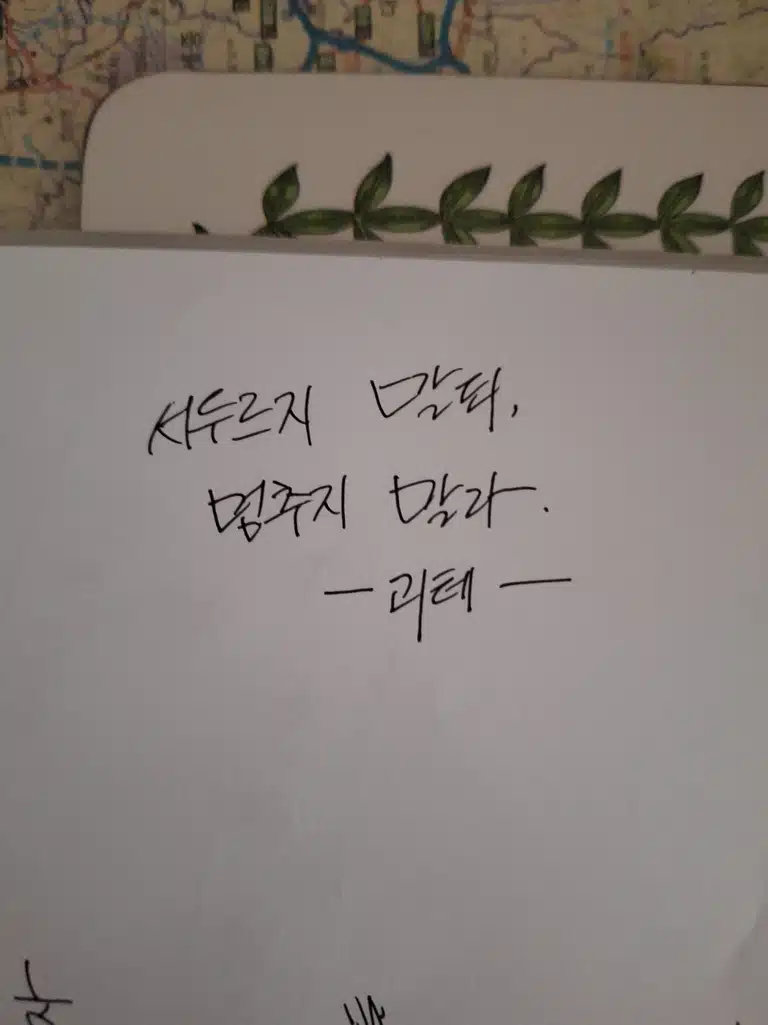 서두르지 말되,
멈추지 말라.
- 괴테 -